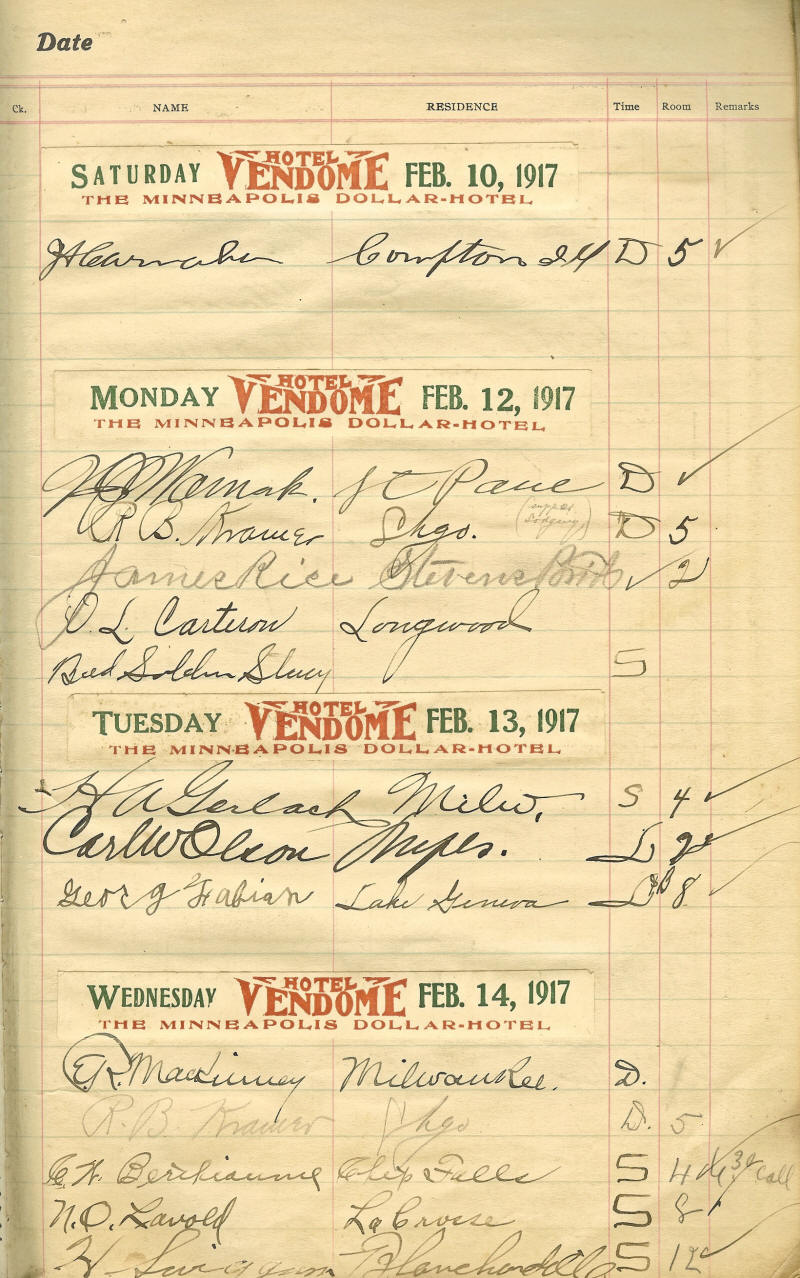 Date
Ck. NAME RESIDENCE Time Room Remarks
SATURDAY HOTEL VENDOME FEB. 10, 1917
THE MINNEAPOLIS DOLLAR-HOTEL
Compton Ill D 5 ✓
MONDAY HOTEL VENDOME FEB. 12, 1917
THE MINNEAPOLIS DOLLAR-HOTEL
St Paul D ✓
R B. Kramer Chgo. (supper lodging) D 5
James Rice Stevens ✓ 2
O. L. Carteron Longwood
S
TUESDAY HOTEL VENDOME FEB. 13, 1917
THE MINNEAPOLIS DOLLAR-HOTEL
H A Gerlach Milw. S 4 ✓
Carl W Olson Mpls. L 2 ✓
Georg Fabian Lake Geneva 8 ✓
WEDNESDAY HOTEL VENDOME FEB. 14, 1917
THE MINNEAPOLIS DOLLAR-HOTEL
E. R. MacKinney Milwaukee. D.
R. B. Kramer Chgo D. 5
Chip Falls S 4 ✓ Call
N. O. Lavold La Crosse S 8
S 12 ✓